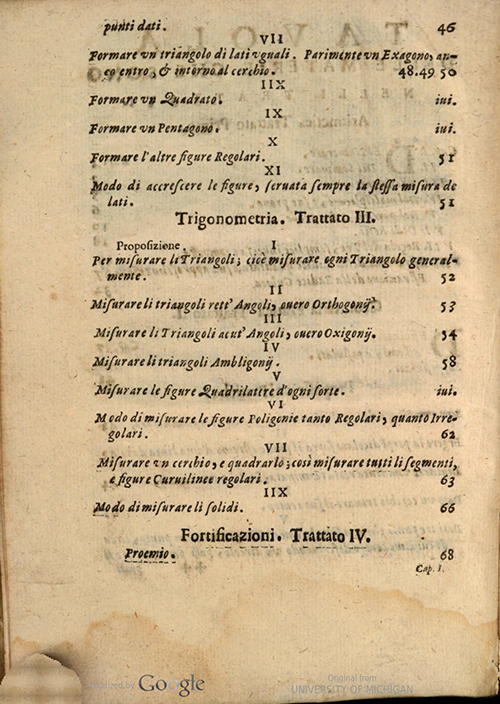 punti dati. 46
VII
Formare vn triangolo di lati vguali. Parimente vn Exagono, an-
co entro, & intorno al cerchio. 48.49 50
IIX
Formare vn Quadrato. iui.
IX
Formare vn Pentagono. iui.
X
Formare l'altre figure Regolari. 51
XI
Modo di accrescere le figure, seruata sempre la stessa misura de
lati. 51
Trigonometria. Trattato III.
Proposizione. I
Per misurare li Triangoli; cioè misurare ogni Triangolo general-
mente. 52
II
Misurare li triangoli rett' Angoli, ouero Orthogonij. 53
III
Misurare li Triangoli acut' Angoli, ouero Oxigonij. 54
IV
Misurare li triangoli Ambligonij. 58
V
Misurare le figure Quadrilatere d'ogni sorte. iui.
VI
Modo di misurare le figure Poligonie tanto Regolari, quanto Irre-
golari. 62
VII
Misurare vn cerchio, e quadrarlo; così misurare tutti li segmenti,
e figure Curuilinee regolari. 63
IIX
Modo di misurare li solidi. 66
Fortificazioni. Trattato IV.
Proemio. 68
Cap. I.
Digitized by Google
Original from
UNIVERSITY OF MICHIGAN